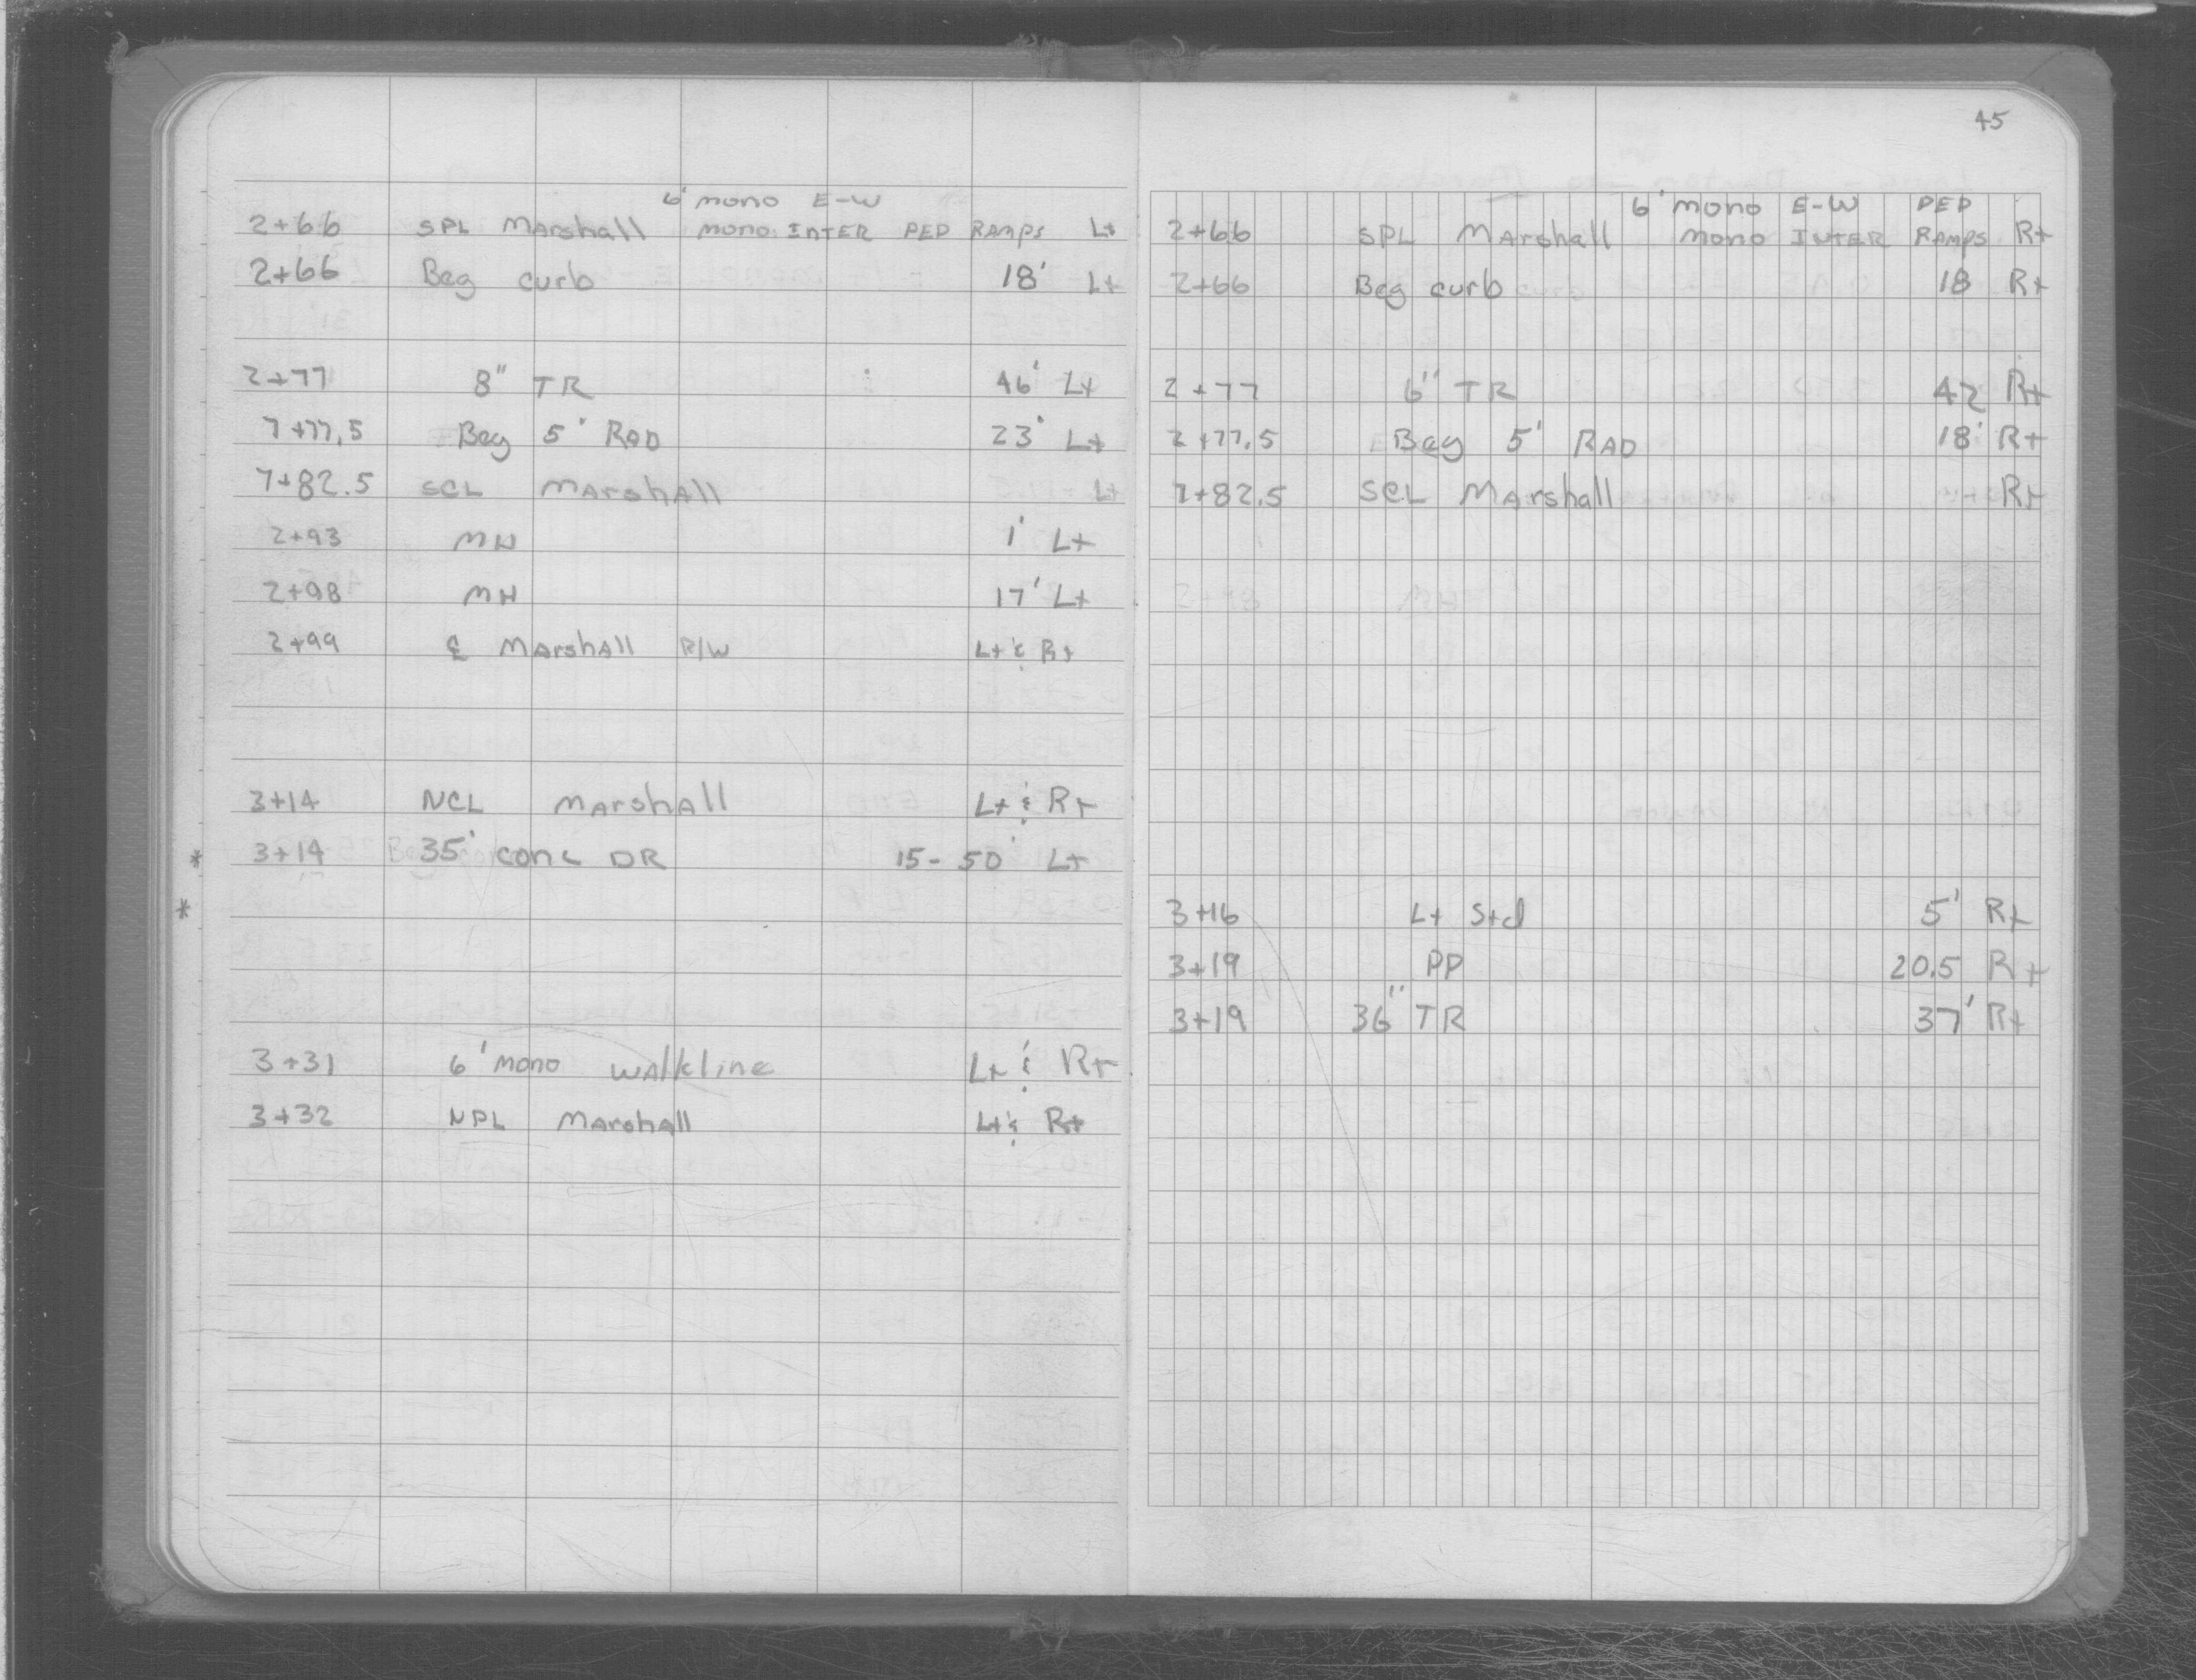 6' mono E-W
2+66 SPL Marshall mono INTER PED RAMPS Lt
2+66 Beg curb 18' Lt
2+77 8" TR 46' Lt
7+77.5 Beg 5' RAD 23' Lt
7+82.5 SCL MArshAll Lt
2+93 MH 1' Lt
2+98 MH 17' Lt
2+99 ℄ MArshAll R/W Lt & Rt
3+14 NCL MArshAll Lt & Rt
* 3+14 35' conc DR 15-50' Lt
*
3+31 6' mono WAlkline Lt & Rt
3+32 NPL MArshAll Lt & Rt
45
6' mono E-W PED
2+66 SPL MArshall mono INTER RAMPS Rt
2+66 Beg curb 18 Rt
2+77 6" TR 42 Rt
2+77.5 Beg 5' RAD 18' Rt
2+82.5 SCL MArshall Rt
2+98 MH
3+16 Lt Std 5' Rt
3+19 PP 20.5 Rt
3+19 36" TR 37' Rt